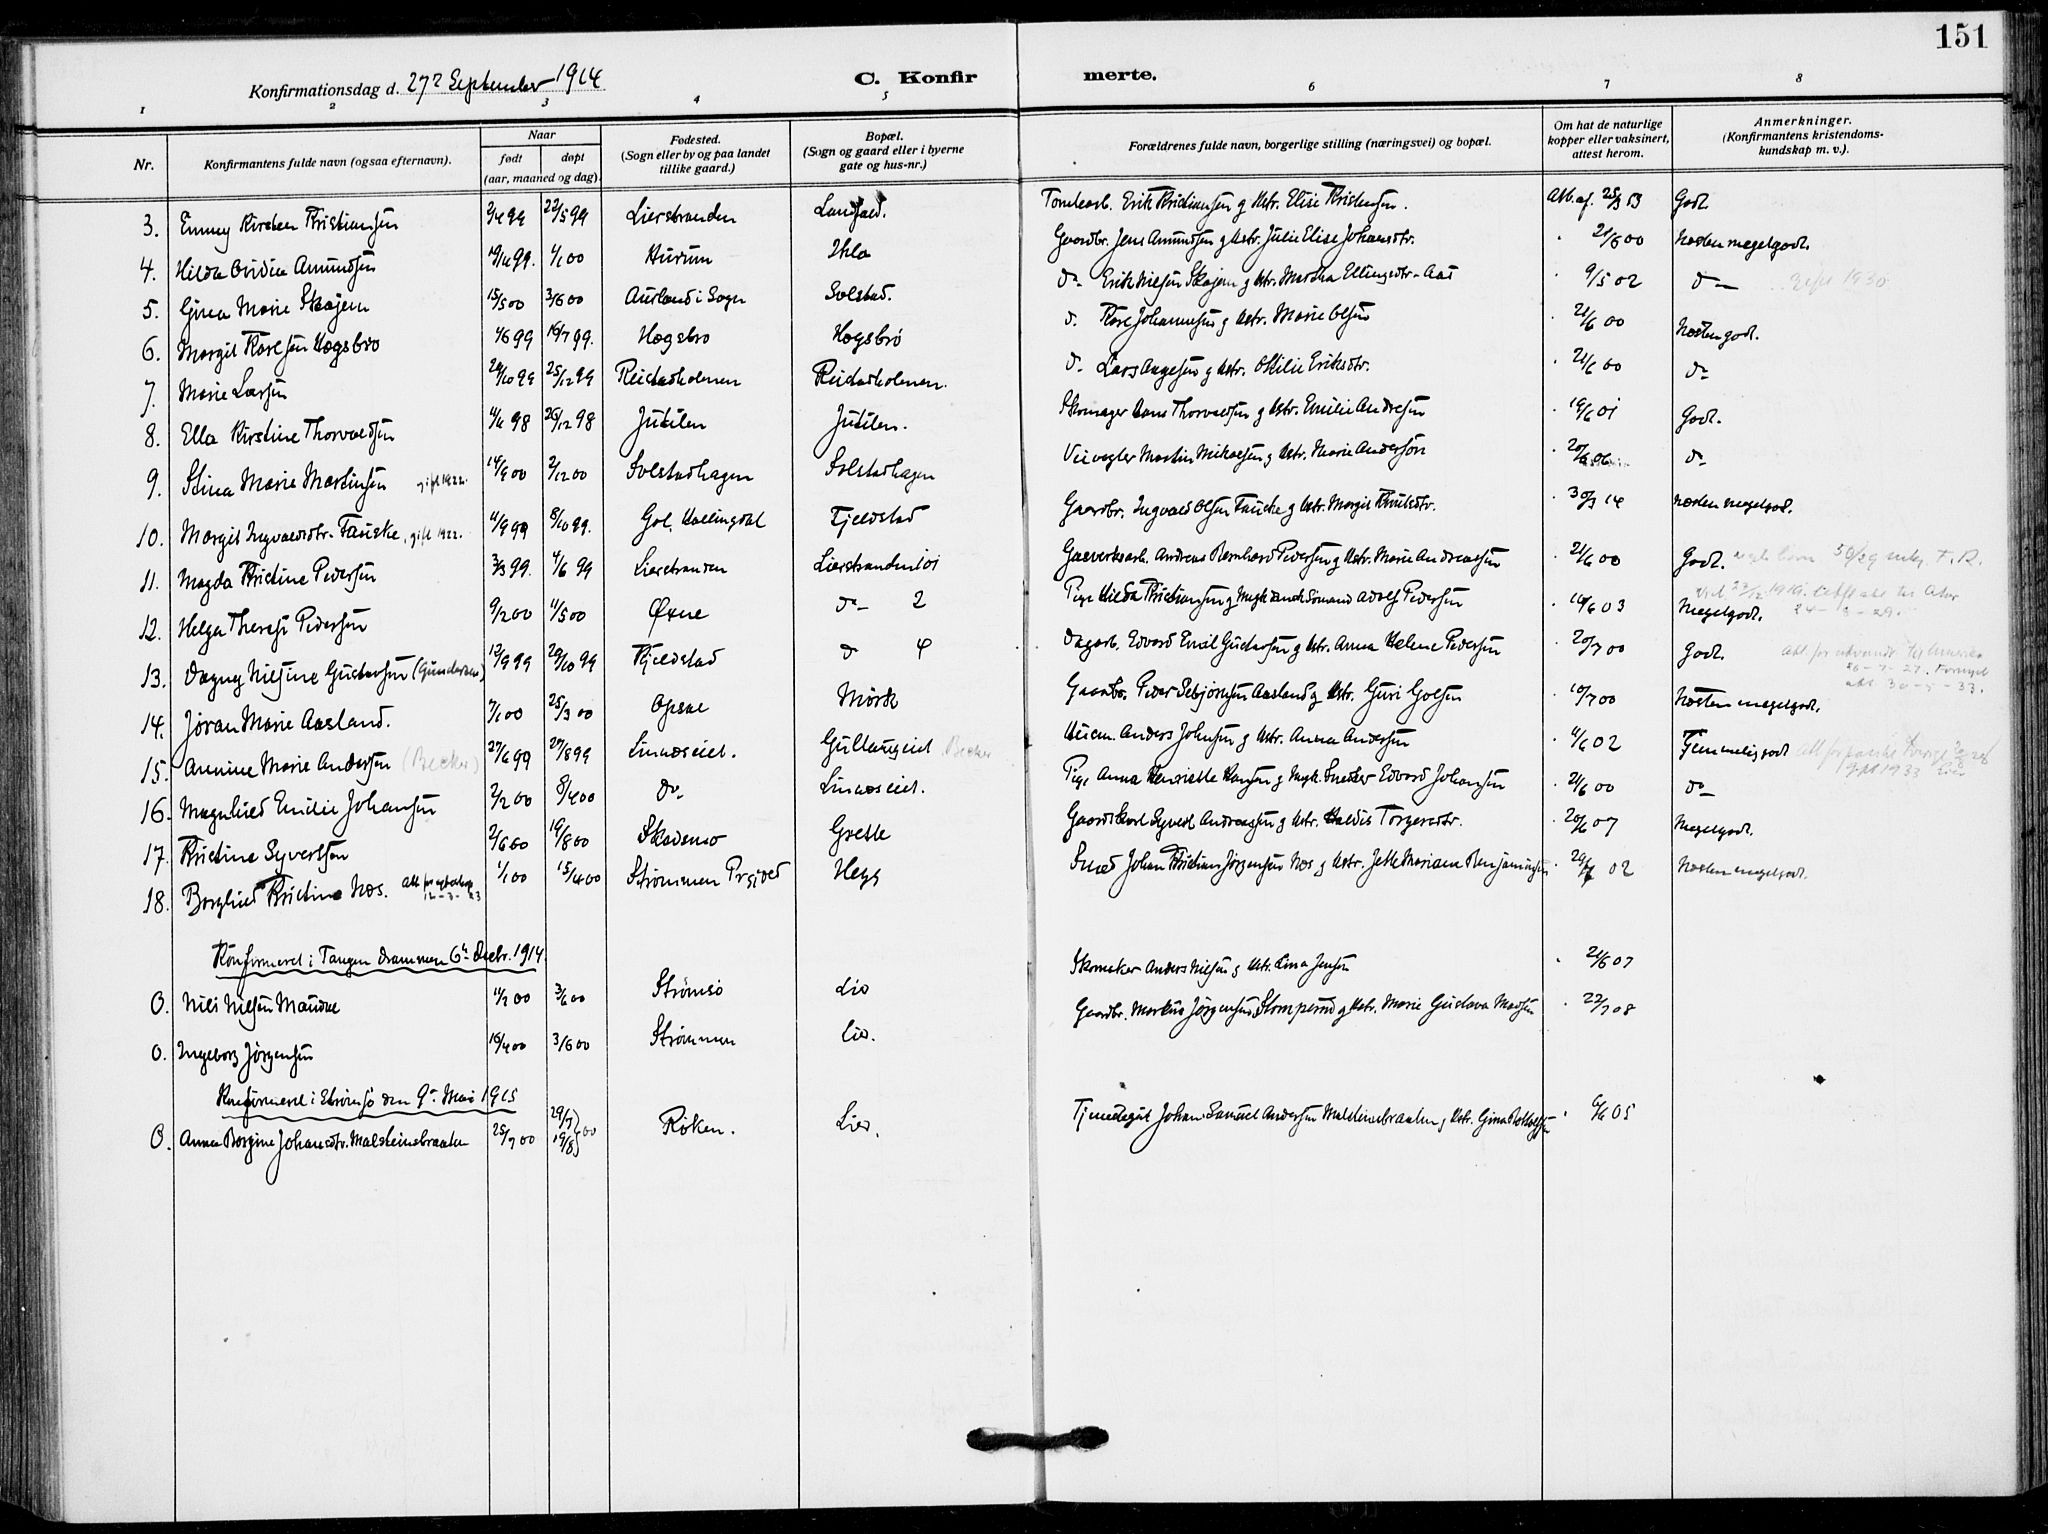 151
Konfirmationsdag d. 27 September 1914 C. Konfir merte.
1 2 3 4 5 6 7 8
Nr. Konfirmantens fulde navn (ogsaa efternavn). Naar født døpt (aar, maaned og dag). Fødested. (Sogn eller by og paa landet tillike gaard.) Bopæl. (Sogn og gaard eller i byerne gate og hus-nr.) Forældrenes fulde navn, borgerlige stilling (næringsvei) og bopæl. Om hat de naturlige kopper eller vaksinert, attest herom. Anmerkninger. (Konfirmantens kristendoms-kundskap m. v.).
3. Emmy Kirsten Kristiansen 22/5 99 Lierstranden Erik Kristiansen g Hstr. Elise Kristensen. Godt
4. Hilda Amundsen 1/1 00 Hurum Hhla Gaardbr. Jens Amundsen g Hstr. Julie Elise Johansdtr. 21/6 00 Næsten megetgodt.
5. Gina Marie Skajem 15/5 00 3/6 00 Aurland i Sogn Solstad. do Erik Nielsen Skajem g Hstr. Martha Ellingsdtr. Aas 9/5 02 do
6. Margit Karlsen Hægsbro 16/7 99. Hægsbro Hægsbro d. Karl Johannesen g Hstr. Marie Olsen 21/6 00 Næsten godt.
7. Marie Larsen 25/12 99 Reidarholmen Reidarholmen. d. Lars Aagesen g Hstr. Otilie Eriksdtr. 21/6 00 do
8. Ella Kirstine Thorvaldsen 26/12 98 Jutulen Jutulen. Skomager Hans Thorvaldsen g Hstr. Emilie Andresen 19/6 01 Godt.
9. Stina Marie Martinsen gift 1922. 14/9 00 2/12 00 Solstadhagen Solstadhagen Veivogter Martin Mikaelsen g Hstr. Marie Andersen do
10. Margit Ingvaldsdtr. Fauske, gift 1922. 11/9 99 8/10 99. Gol, Hallingdal Fjeldstad Gaardbr. Ingvald Olsen Fauske g Hstr. Margit Knutsdtr. 30/3 14 Næsten megetgodt.
11. Magda Kristine Pedersen 3/3 99. 4/6 99 Lierstranden Lierstranden 101 Gasverksarb. Andreas Bernhard Pedersen g Hstr. Marie Andreassen 21/6 00 Godt.
12. Helga Therese Pedersen 9/2 00 4/5 00 Øxne do 2 Pige Hilda Kristiansen g Adolf Pedersen 19/6 03 Megetgodt.
13. Dagny Nilsine Gustavsen (Gundersen) 13/9 99 29/10 99 Kjeldstad do 4 Dagarb. Edvard Emil Gustavsen g Hstr. Anna Helene Pedersen 20/7 00 Godt.
14. Jøran Marie Aasland. 7/1 00 25/3 00 Opsal Mørk Gaardbr. Peder Aasland g Hstr. Guri Golsen 10/7 00 Næsten megetgodt.
15. Annine Marie Andersen (Becker) 27/6 99 27/8 99 Linnæseiet. Gullaugeiet Becker Anders Johnsen g Hstr. Anna Andersen 4/6 02 Temmelig godt
16. Magnhild Emilie Johansen 2/2 00 8/4 00 do Linnæseiet. Pige Anna Henriette Hansen g Edvard Johansen 21/6 00 do
17. Kristine Syvertsen 2/6 00 19/8 00 Skademo Grette Syvert Andreassen g Hstr. Haldis Torgersdtr. 20/6 07 Megetgodt.
18. Borghild Kristine Næs. 1/1 00 15/4 00 Strømmen Prgjeld Hegg Smed Johan Kristian Jørgensen Næs g Hstr. Jette Mariane Benjaminsen Næsten megetgodt.
Konfirmeret i Tangen Drammen 6te Decbr. 1914.
0. Nils Nilsen Maudal 3/6 00 Strømsø Lier Skomaker Anders Nilsen g Hstr. Lina Jensen 21/6 07
0. Ingeborg Jørgensen 16/4 00 3/6 00 Strømmen Lier. Gaardbr. Markus Jørgensen Stomperud g Hstr. Marie Gustava Madsen 22/7 08
Konfirmeret i Strømsø den 9de Mai 1915
0. Anna Borgine Johansdtr. Malsteinsbraaten 25/7 00 29/7 19/8 00 Røken. Lier. Johan Samuel Andersen Malsteinsbraaten g Hstr. Gina 05